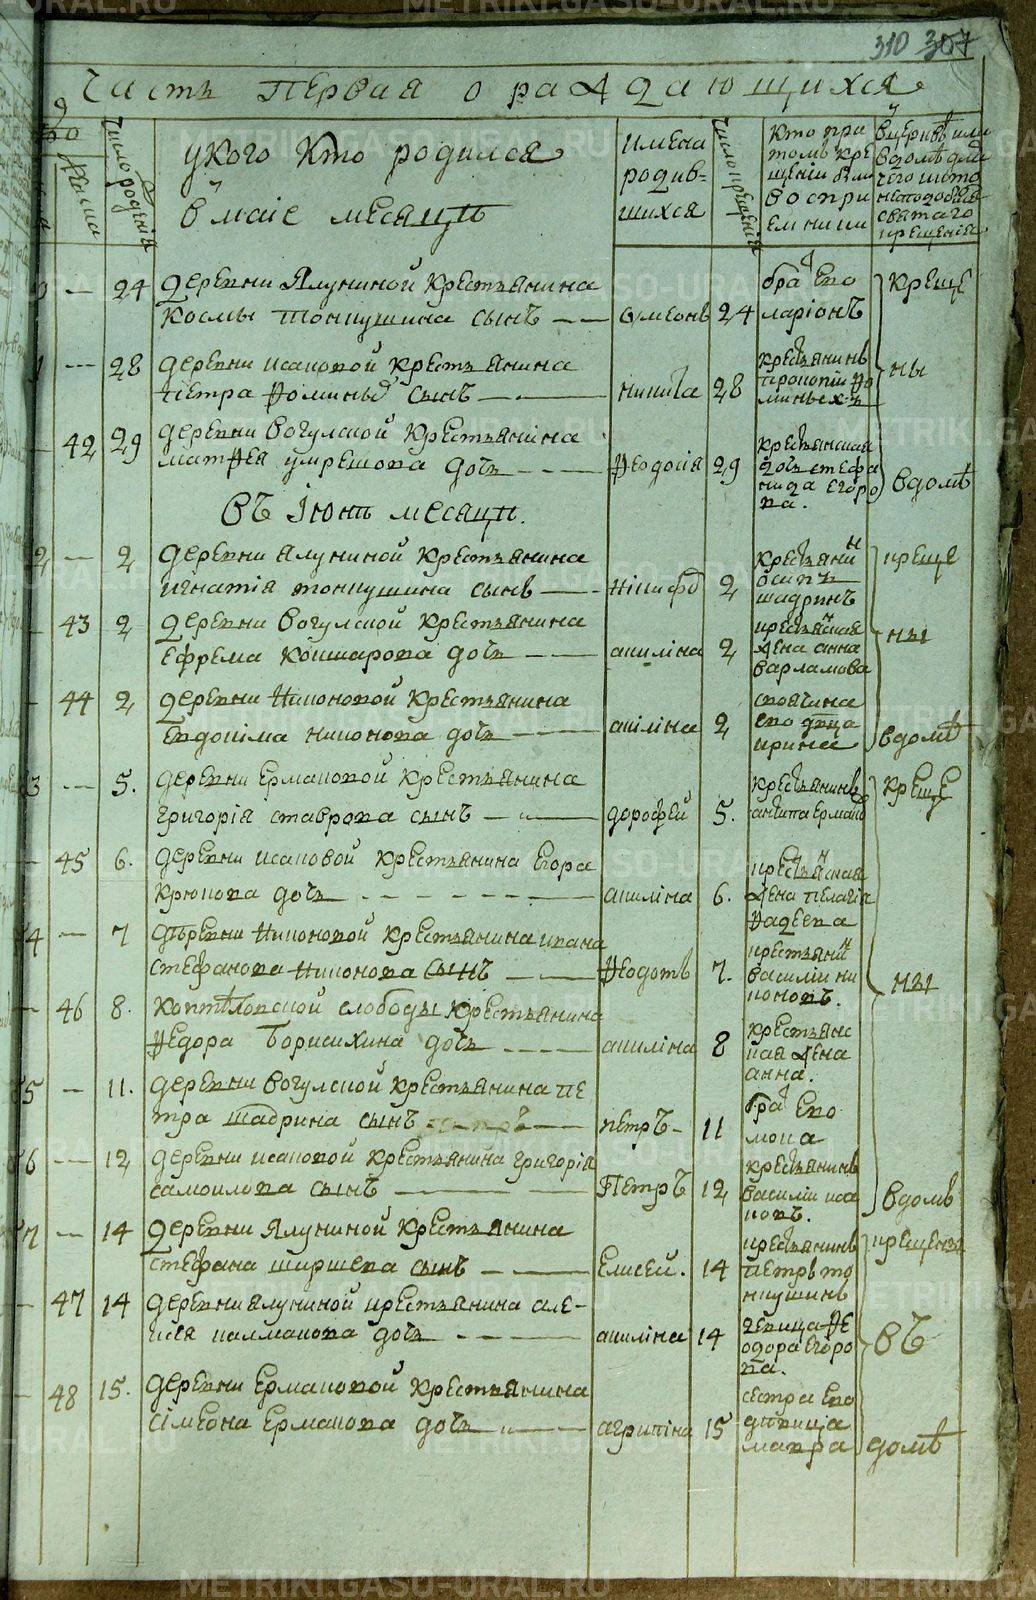 310 367
Часть первая о раждающихся
Число родения
у кого кто родился
в маіе месяцѣ
имена
родив-
шихся
Число крещения
кто при
томъ кре
щении бы
воспри
емники
в церквѣ или
в домѣ для
чего и кто
неподобия
святаго
крещения
— 24 деревни Ялуниной крестьянина
Космы Тонкушина сынъ — — Сумеонъ 24
братъ Его
ларіонъ
креще
— 28 деревни исаковой крестьянина
Петра Фоминыхъ сынъ — Никита 28
крестьянинъ
прокопий Фо
миныхъ
ны
42 29 деревни Вогулской крестьянина
матфея умрешова дочь — Феодосія 29
крестьянская
дочь стефа
нида Егоро
ва.
в домѣ
Въ Іюнѣ месяцѣ.
2 — 2 деревни Ялуниной крестьянина
игнатія тонкушина сынъ — Никифо 2
крестьянин
осипъ
шадринъ
креще
43 2 деревни Вогулской крестьянина
Ефрема Кошкарова дочь — акилина 2
крестьянская
жена анна
варламова
ны
44 2 деревни Никоновой крестьянина
Евдокима никонова дочь — акилина 2
своячина
его двца
ирина
в домѣ
3 — 5. деревни Ермаковой крестьянина
григорія ставрова сынъ — дорофей 5.
крестьянинъ
антипа Ермаков
креще
45 6. деревни исаковой крестьянина Егора
крюкова дочь — акилина 6.
крестьянская
жена пелагія
Фадеева
4 — 7 дѣревни Никоновой крестьянина ивана
стефанова Никонова сынъ — Феодотъ 7.
крестьянин
василии ни
коновъ.
ны
46 8. Коптѣловской слободы крестьянина
Федора Борисихина дочь — акилина 8
крестьянс
кая жена
анна.
5 — 11. деревни Вогулской крестьянина Пе
тра шадрина сынъ — петръ — 11
братъ Его
мока
6 — 12 деревни исаковой крестьянина григорія
самоилова сынъ — Петръ 12
крестьянинъ
василии иса
ковъ.
в домѣ
7 — 14 деревни Ялуниной крестьянина
стефана ширшева сынъ — Елисей. 14
крестьянинъ
Петръ то
нкушинъ
крещены
47 14 деревни Ялуниной крестьянина але-
ксѣя калмакова дочь — акилина 14
девица Фе
одора Егоро
ва.
въ
48 15. деревни Ермаковой крестьянина
Сімеона Ермакова дочь — агрипіна 15
сестра Его
дѣвица
мавра
домѣ